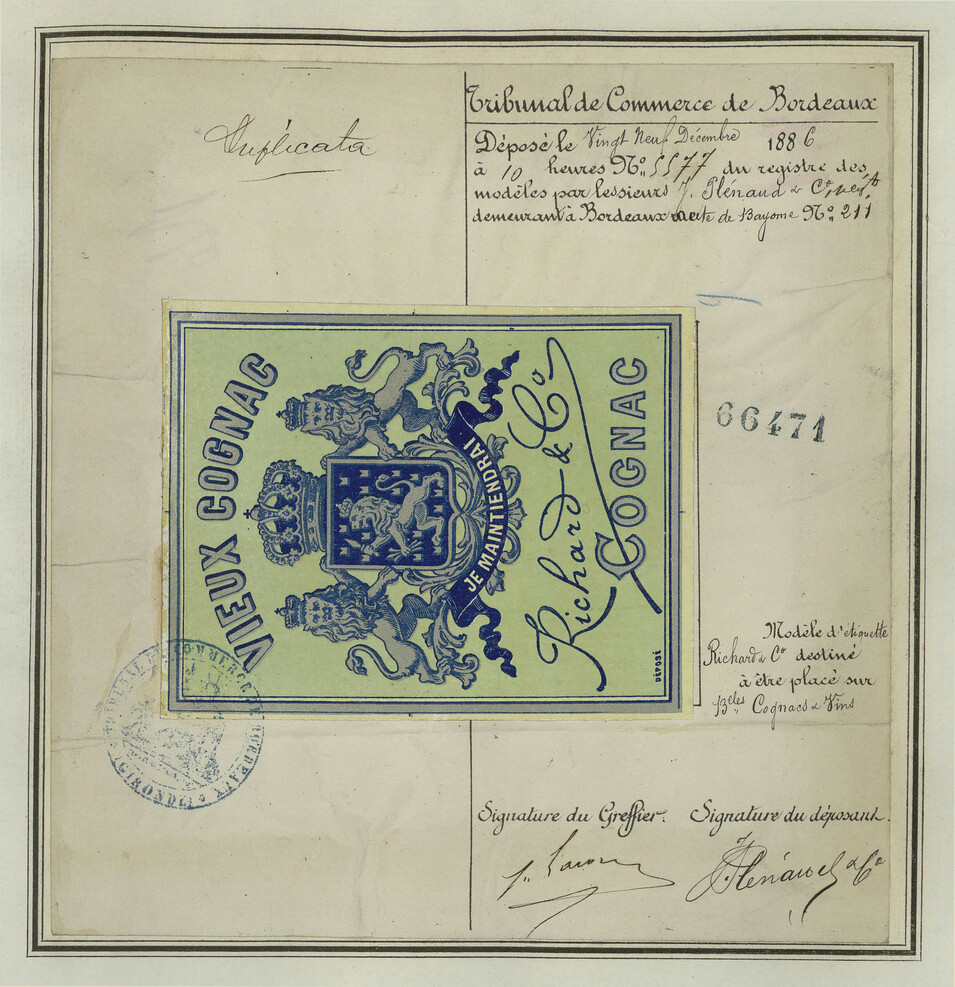 Duplicata
Tribunal de Commerce de Bordeaux
Déposé le Vingt Neuf Décembre 1886
à 10 heures No. 5577 du registre des
modèles par les sieurs J. Plénaud & Co, négts
demeurant à Bordeaux route de Bayonne No. 211
VIEUX COGNAC
JE MAINTIENDRAI
Richard & Co
COGNAC
DÉPOSÉ
66471
Modèle d'étiquette
Richard & Co destiné
à être placé sur
Bles Cognacs & Vins
TRIBUNAL DE COMMERCE DE BORDEAUX
(GIRONDE)
Signature du Greffier. Signature du déposant.